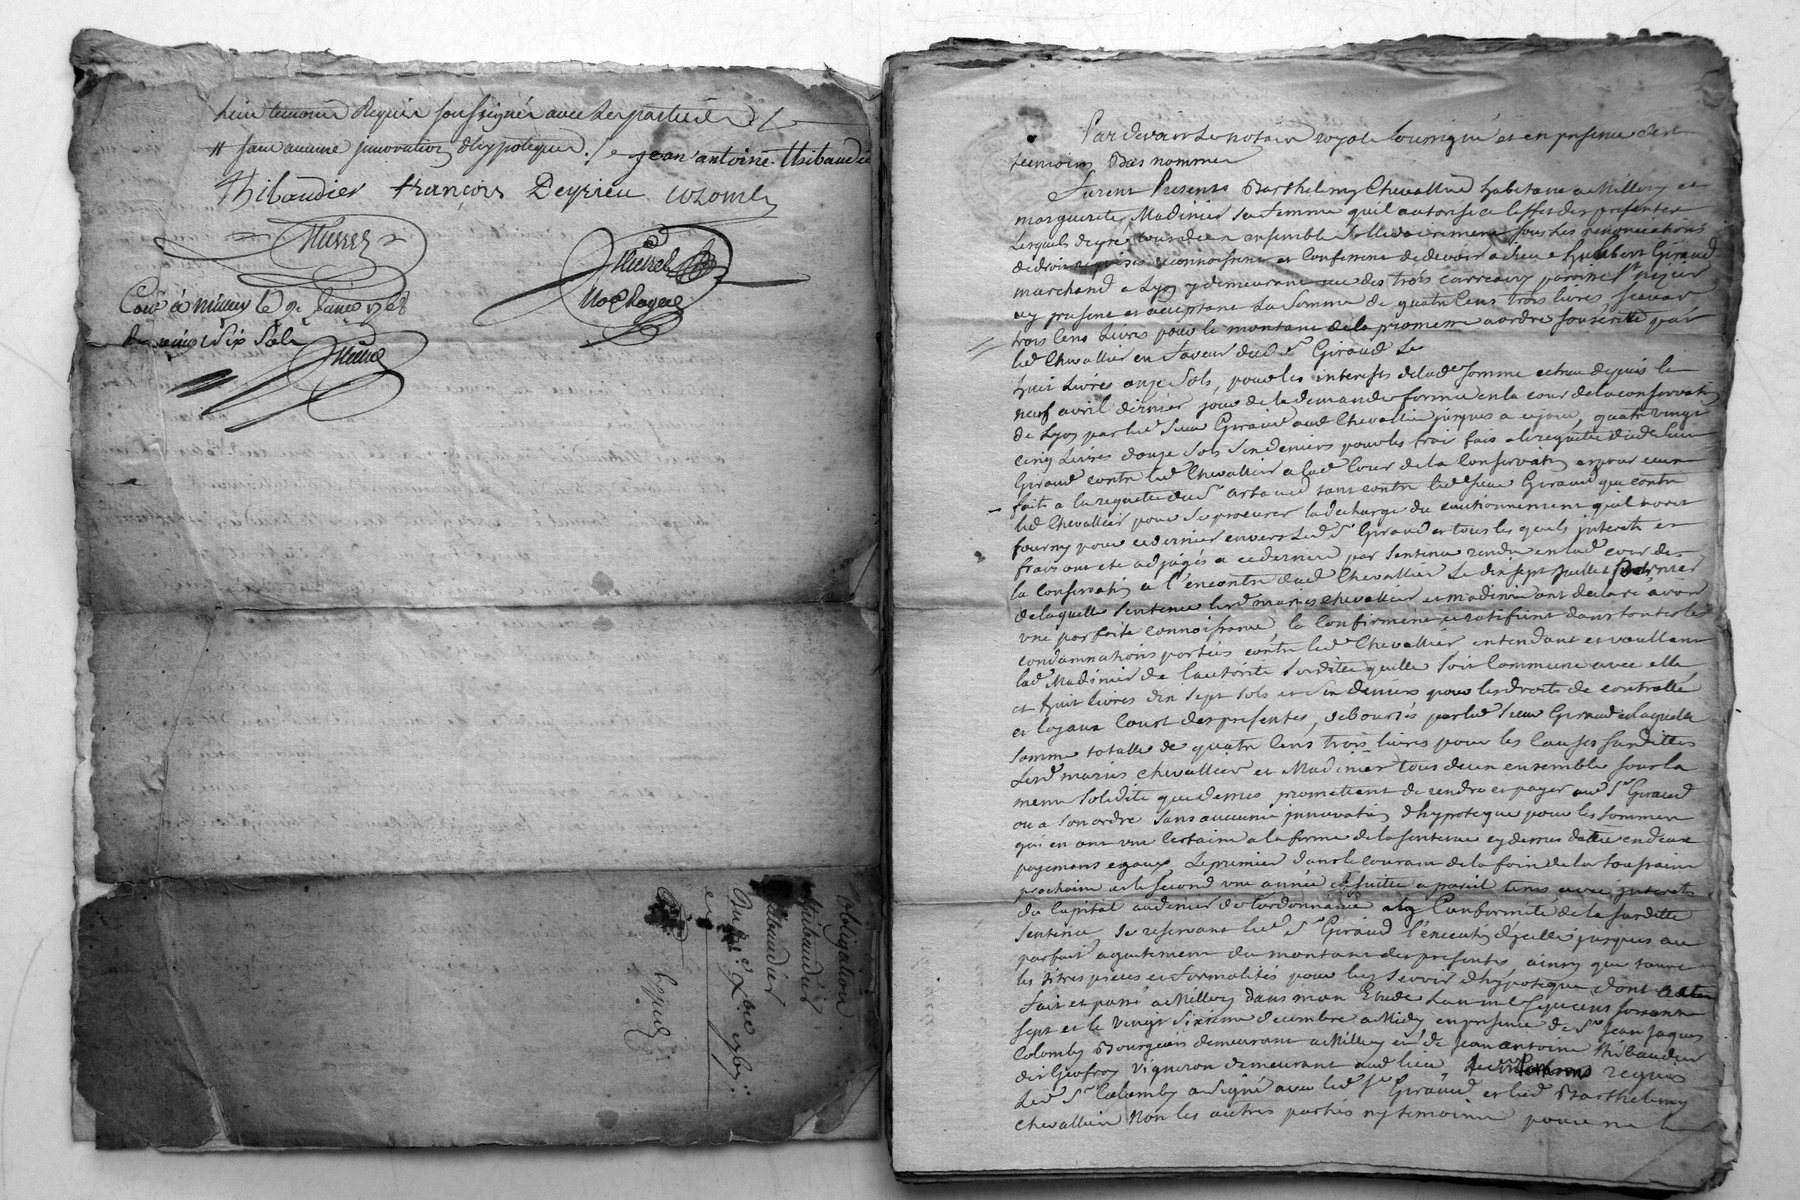 requis soussignés avec les parties
# sans aucune innovation d'hypoteque jean antoine thibaudier
Thibaudier françois Deyrieu colomby
Murel
Murel
Con.lé à millery le 9. janvier 1768
Murel
obligation
thibaudier
Thibaudier
Du 26.e Xbre 1767.
Expedi
Pardevant Le notaire royale soussigné et en presence des
temoins Bas nommes
furent Presents Barthelemy Chevallier habitant a Millery et
marguerite Madinier sa femme quil autorise a leffet des presentes
Lesquels de gré tous deux ensemble sollidairement sous les renonciations
de droit requises reconnoissent et Confessent de devoir a sieur humbert Giraud
marchand a Lyon y demeurant rue des trois carreaux paroisse St nizier
icy present et acceptant La somme de quatre Cens trois livres, scavoir
trois Cens Livres pour le montant de la promesse a ordre souscritte par
led Chevallier en faveur dud sr Giraud Le
huit Livres onze sols, pour les interests de lade somme echus depuis le
neuf avril dernier jour de la demande formée en la cour de la conservation
de Lyon par led sieur Giraud aud Chevallier jusques a ce jour, quatre vingt
cinq Livres douze sols six deniers pour les frais fais a la requete dud sieur
Giraud contre led Chevallier a lad Cour de la Conservation et pour ceux
faits a la requete du sr artaud tant contre led sieur Giraud que contre
led Chevallier pour se procurer la decharge du cautionnement quil avoit
fourny pour ce dernier envers led sr Giraud et tous les quels interests et
frais ont eté adjugés a ce dernier par sentence rendue en lad cour de
la Conservation a l'encontre dud Chevallier Le dix sept juillet dernier
de laquelle sentence lesd mariés chevallier et madinier ont declaré avoir
une parfaite connoissance la Confirment et ratifient dans toutes les
condamnations portées contre led Chevallier intendant et voullant
lad Madinier de l'autorité susditte quelle soit Commune avec elle
et huit livres dix sept sols et six deniers pour les droits de controlle
et loyaux Coust des presentes, deboursés par led sieur Giraud de laquelle
somme totalle de quatre Cens trois livres pour les Causes susdittes
Lesd mariés chevallier et Madinier tous deux ensemble sous la
meme solidité que dessus promettent de rendre et payer aud sr Giraud
ou a son ordre sans aucune innovation d'hypoteque pour les sommes
qui en ont une Certaine a la forme de la sentence cy dessus datée en deux
payemens egaux Le premier dans le courant de la foire de la toussaint
prochaine et le second une année ensuitte a pareil tems avec interests
du Capital au denier de l'ordonnance Conformité de la susditte
sentence se reservant led sr Giraud l'execution d'icelle jusques au
parfait aquittement du montant des presentes ainsy que tous
les titres pieces et formalités pour luy servir d'hypoteque dont acte
fait et passé a Millery dans mon Etude Lan mil sept cens soixante
sept et le vingt sixieme decembre a Midy en presence de sr jean jaques
Colomby Bourgeois demeurant a Millery et de jean antoine thibaudier
dit Geofroy vigneron demeurant aud lieu temoins requis
Led sr Colomby a signé avec led sr Giraud et led Barthelemy
chevallier Non les autres parties ny temoins pour ne le